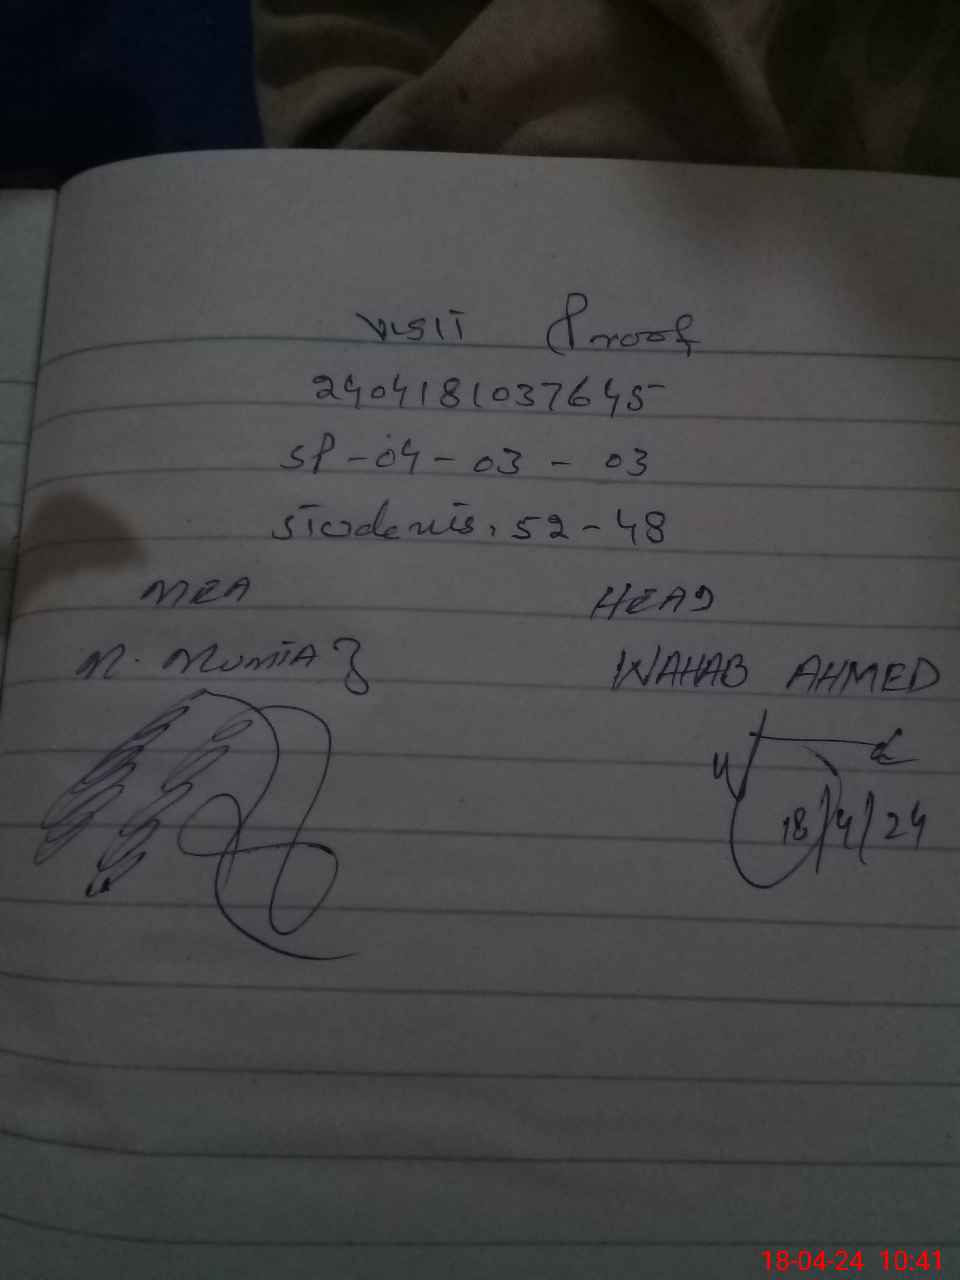 Visit Proof
2404181037645
SP-04-03-03
Students. 52-48
MEA HEAD
M. Mumtaz WAHAB AHMED
18/4/24
18-04-24 10:41